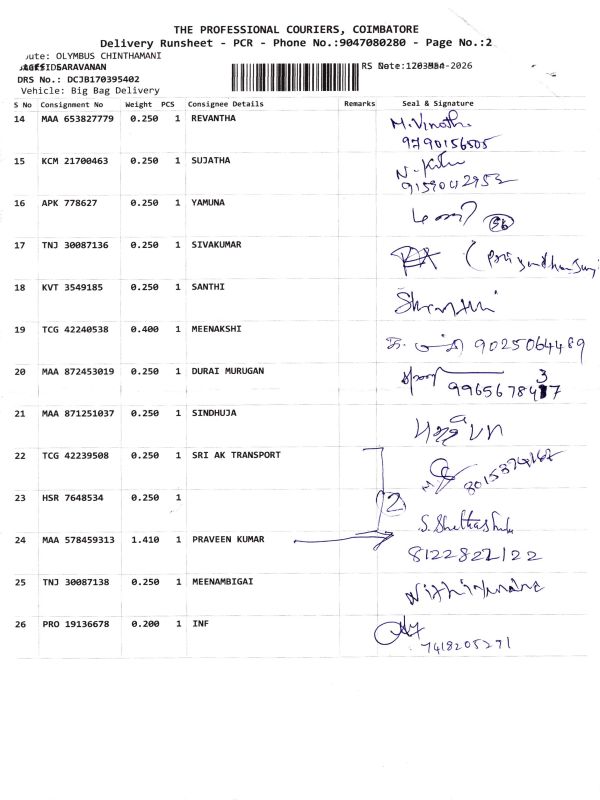 THE PROFESSIONAL COURIERS, COIMBATORE
Delivery Runsheet - PCR - Phone No.:9047080280 - Page No.:2
oute: OLYMBUS CHINTHAMANI
SARAVANAN
DRS No.: DCJB170395402
Vehicle: Big Bag Delivery
S No Consignment No Weight PCS Consignee Details Remarks Seal & Signature
14 MAA 653827779 0.250 1 REVANTHA M. Vinoth
9790156505
15 KCM 21700463 0.250 1 SUJATHA
9159042952
16 APK 778627 0.250 1 YAMUNA
17 TNJ 30087136 0.250 1 SIVAKUMAR
18 KVT 3549185 0.250 1 SANTHI
19 TCG 42240538 0.400 1 MEENAKSHI 9025064489
20 MAA 872453019 0.250 1 DURAI MURUGAN
21 MAA 871251037 0.250 1 SINDHUJA
22 TCG 42239508 0.250 1 SRI AK TRANSPORT
23 HSR 7648534 0.250 1 2
24 MAA 578459313 1.410 1 PRAVEEN KUMAR
8122822122
25 TNJ 30087138 0.250 1 MEENAMBIGAI
26 PRO 19136678 0.200 1 INF
7418205271